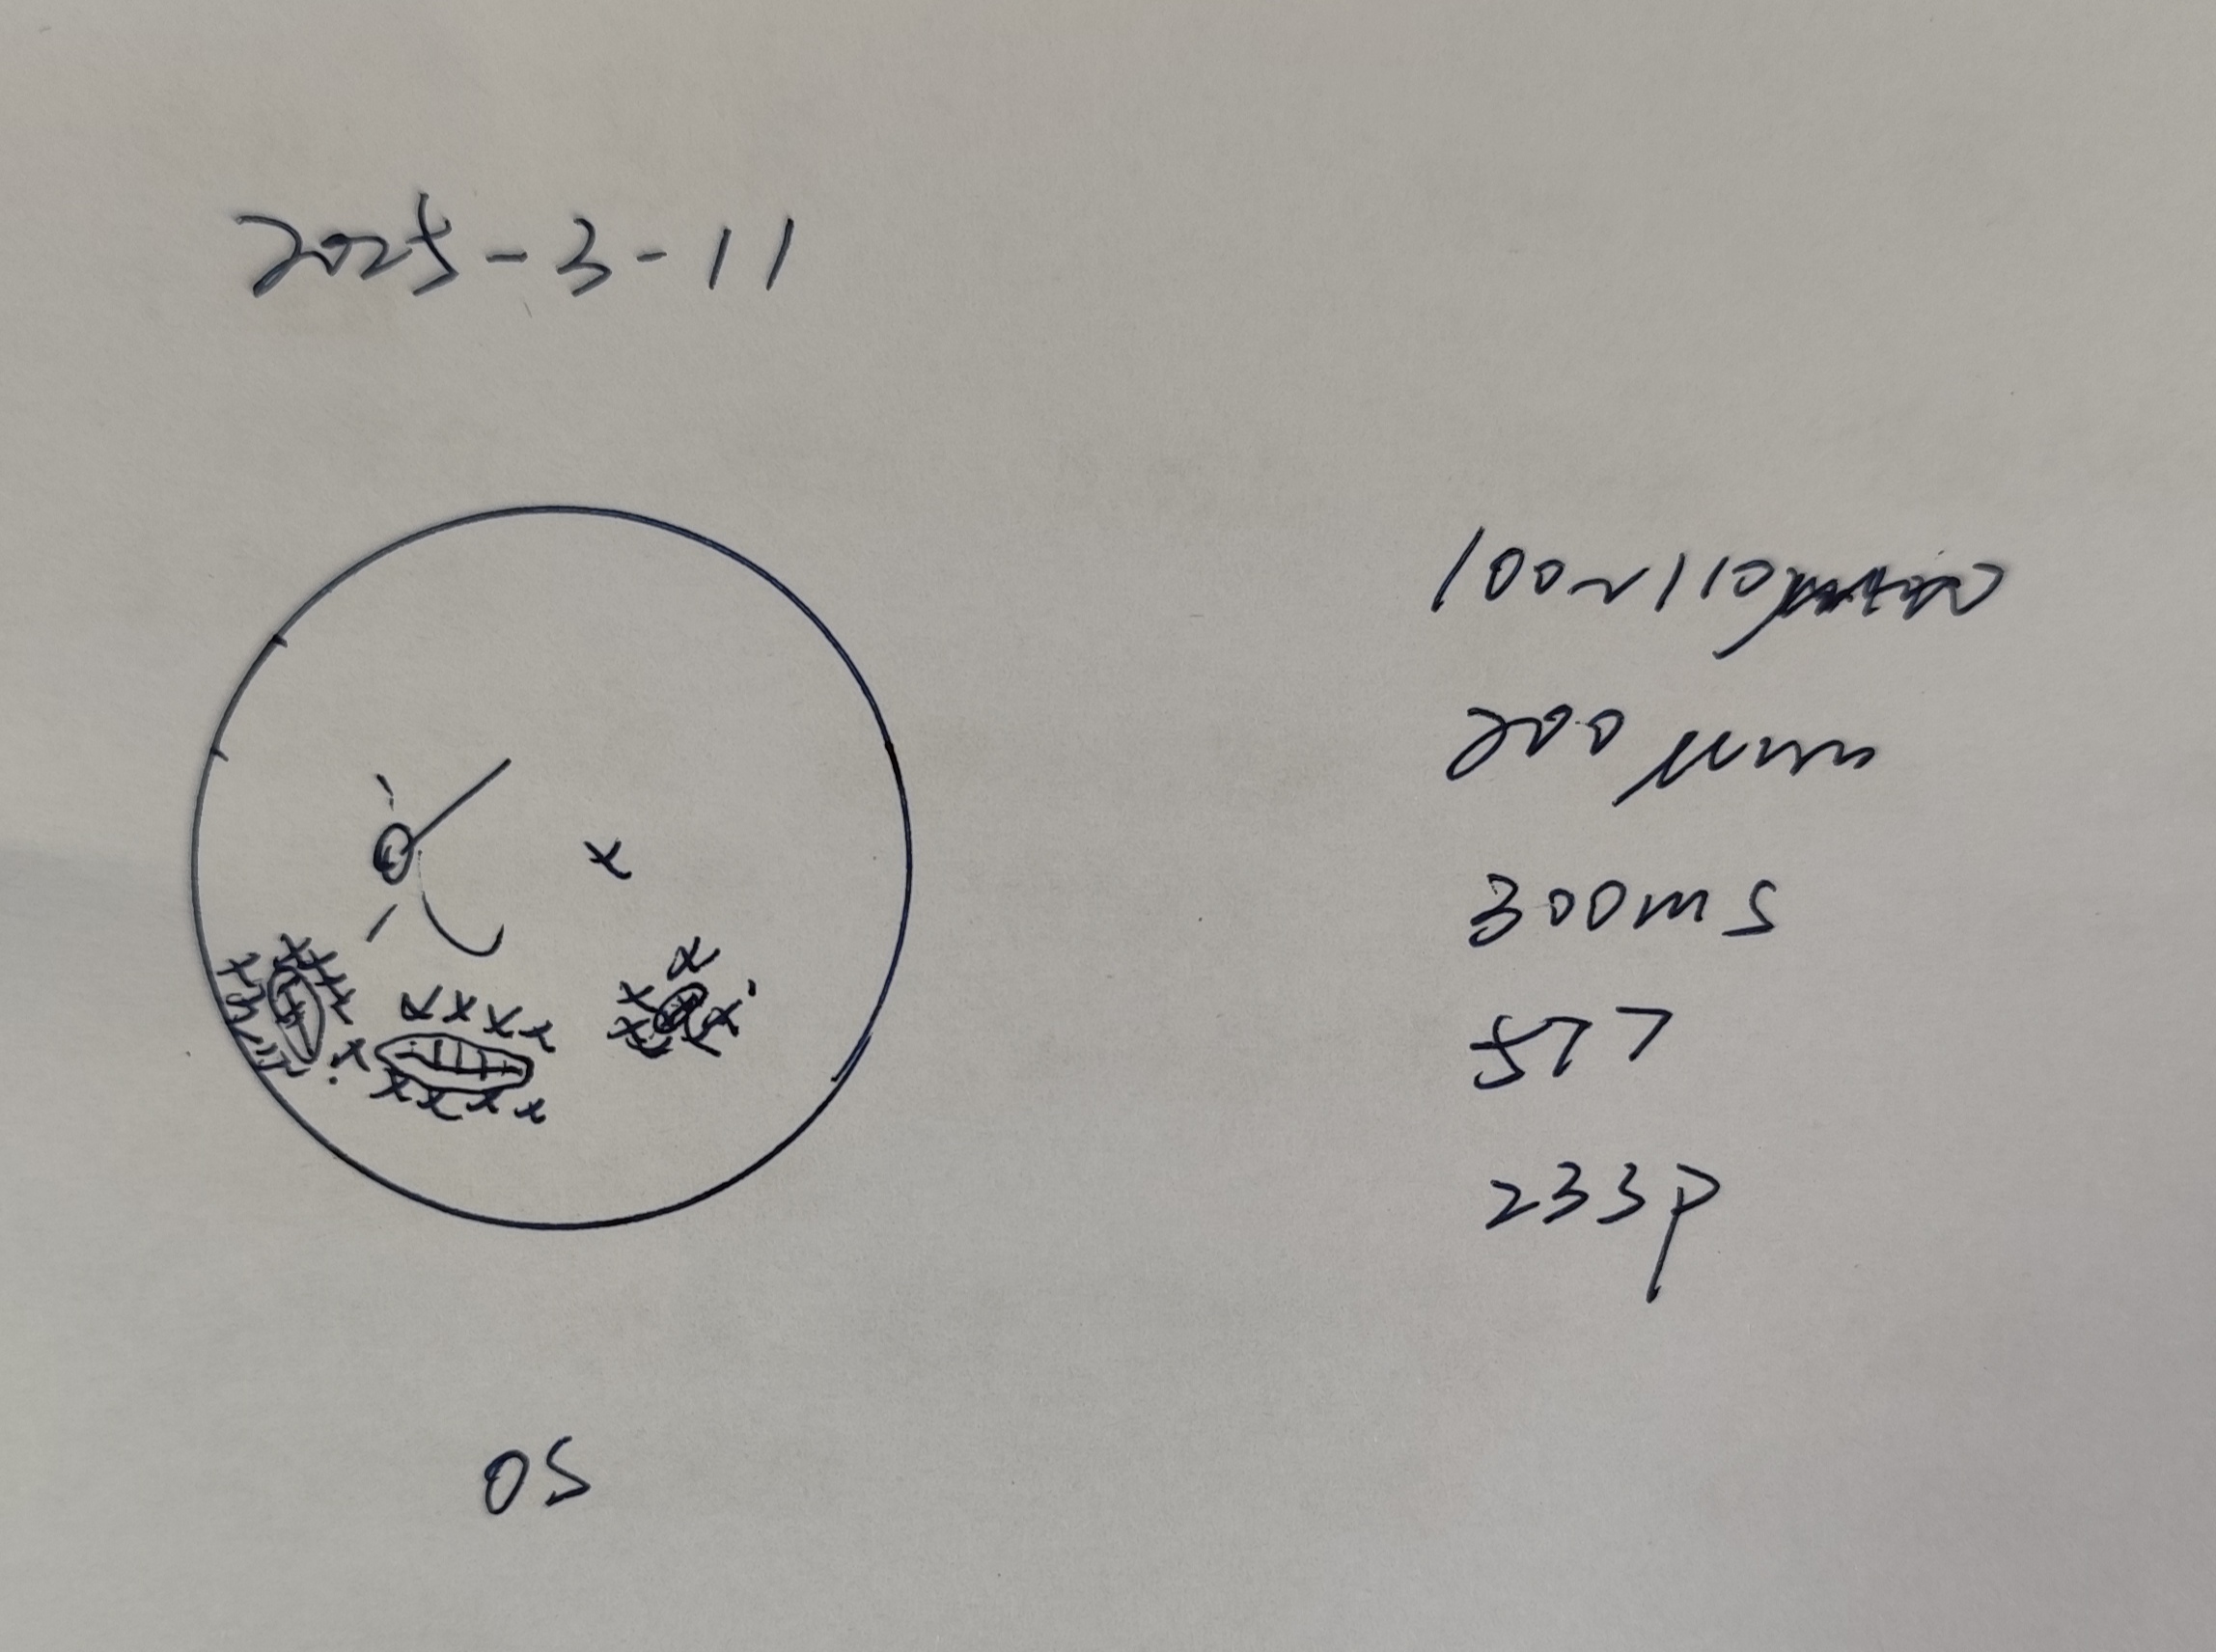 2025-3-11
100~110
200 μm
300ms
577
233P
OS